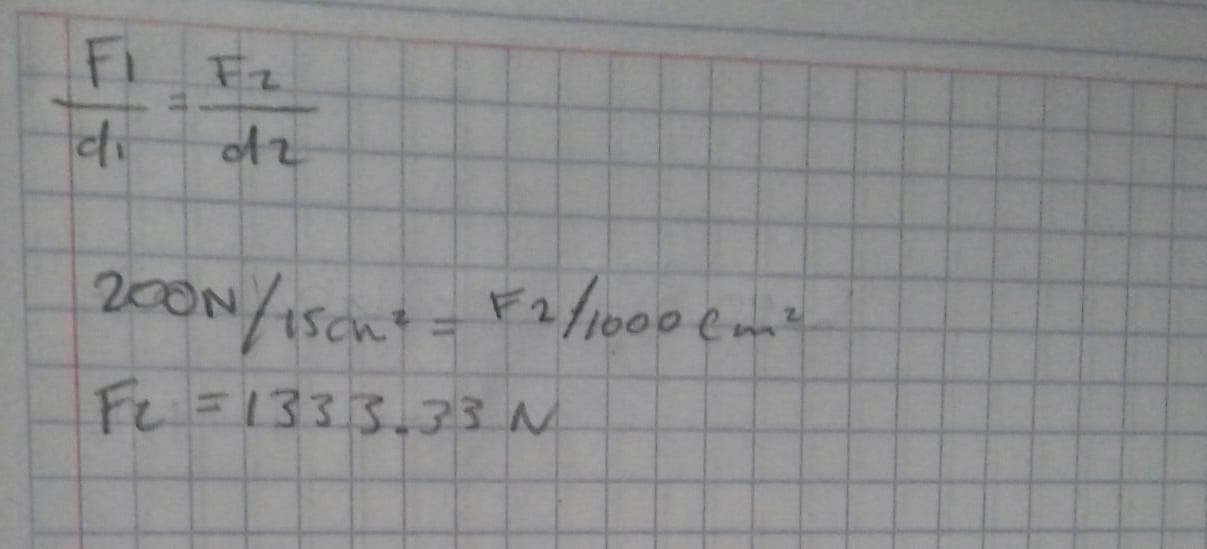 F1/d1 = F2/d2
200N/15cm² = F2/1000cm²
F2 = 1333.33 N